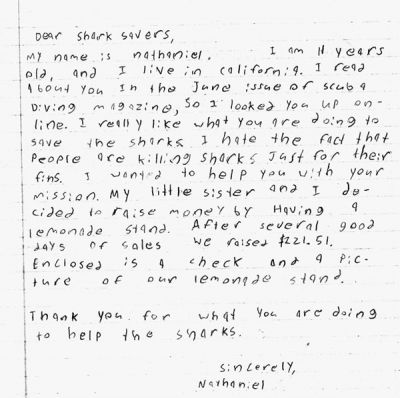 Dear Shark Savers,
My name is Nathaniel. I am 11 years
old, and I live in California. I read
About you In the June issue of scuba
Diving magazine, so I looked you up on-
line. I really like what you are doing to
save the sharks. I hate the fact that
People are killing sharks Just for their
fins. I wanted to help you with your
mission. My little sister and I de-
cided to raise money by Having a
lemonade stand. After several good
days of sales we raised $221.51.
Enclosed is a check and a Pic-
ture of our lemonade stand.
Thank you for what you are doing
to help the sharks.
Sincerely,
Nathaniel